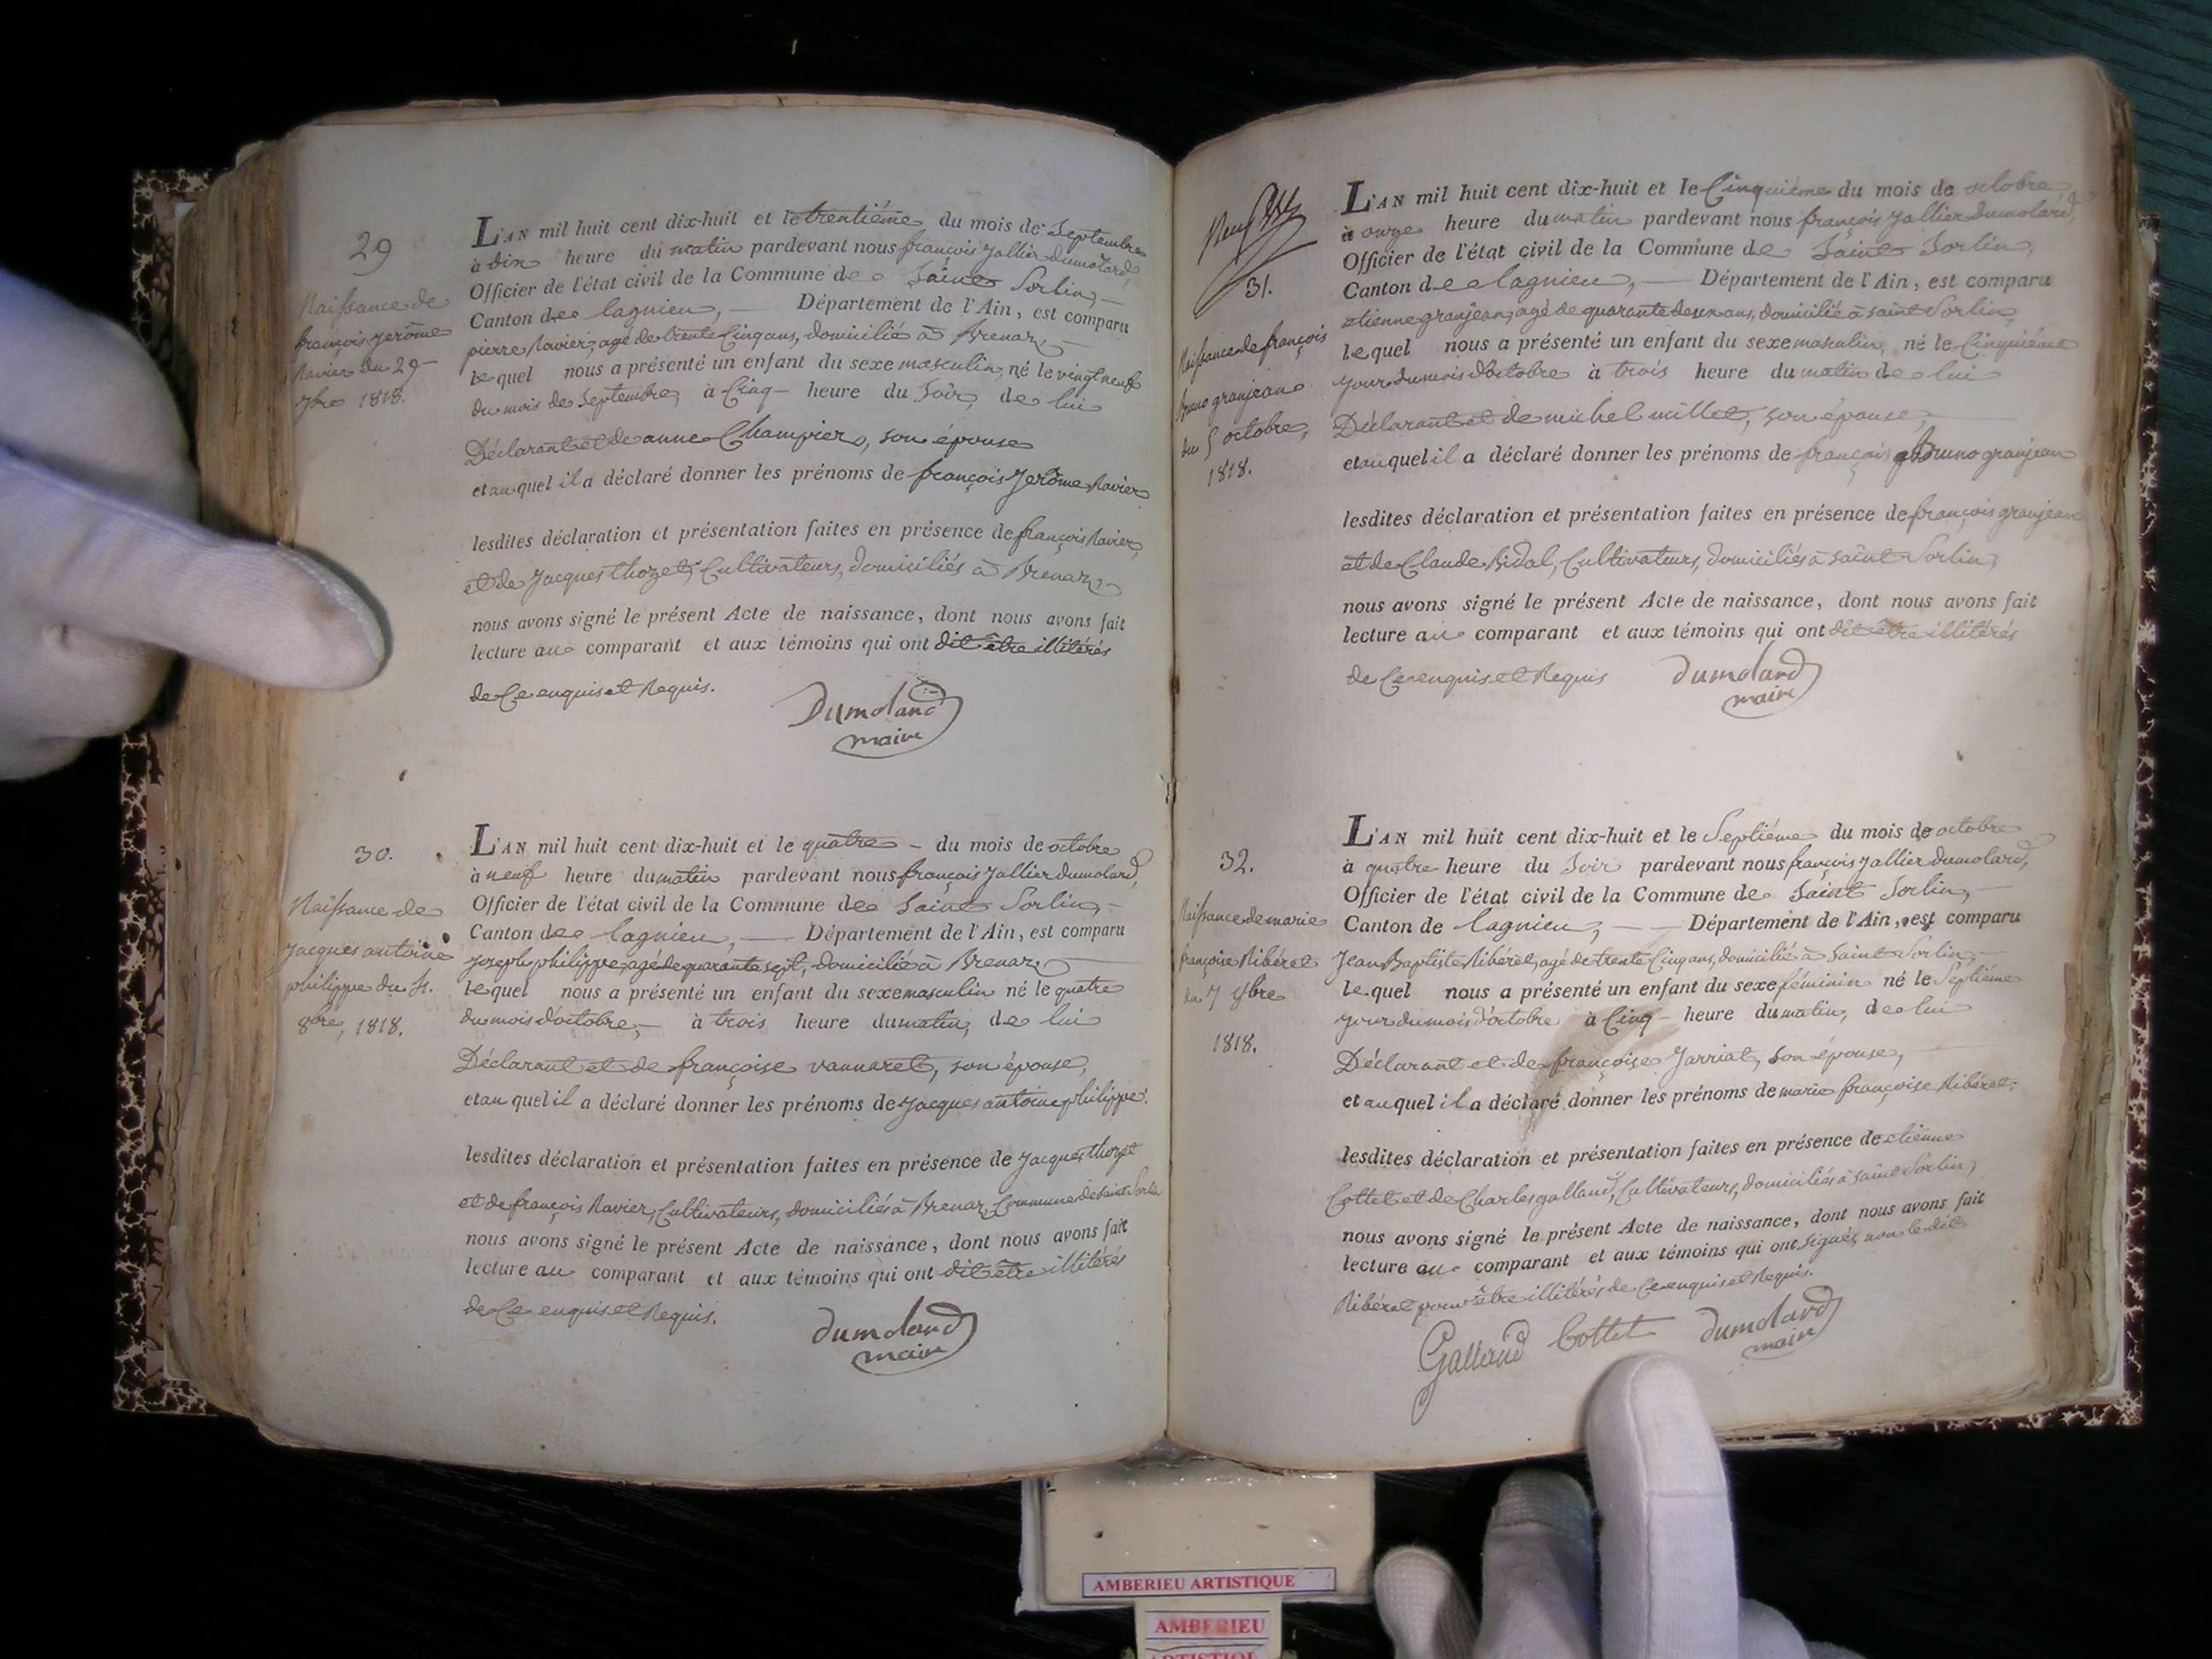 29
Naissance de
françois jerôme
Ravier du 29
7bre 1818.
L'AN mil huit cent dix-huit et le trentiéme du mois de Septembre
à dix heure du matin pardevant nous françois Jallier Dumolard,
Officier de l'état civil de la Commune de Saint Sorlin,
Canton de lagnieu, Département de l'Ain, est comparu
pierre Ravier, agé de trente Cinq ans, domicilié à Brenaz,
lequel nous a présenté un enfant du sexe masculin, né le vingt neuf
du mois de Septembre, à Cinq heure du Soir, de lui
Déclarant et de anne Champier, son épouse
et auquel il a déclaré donner les prénoms de françois Jerôme Ravier
lesdites déclaration et présentation faites en présence de françois Ravier,
et de Jacques thozet, Cultivateurs, domiciliés à Brenaz,
nous avons signé le présent Acte de naissance, dont nous avons fait
lecture au comparant et aux témoins qui ont dit être illitérés
de Ce enquis et Requis.
Dumolard
maire
30.
Naissance de
Jacques antoine
philippe du 4.
8bre, 1818.
L'AN mil huit cent dix-huit et le quatre du mois de octobre
à neuf heure du matin pardevant nous françois Jallier Dumolard,
Officier de l'état civil de la Commune de Saint Sorlin,
Canton de lagnieu, Département de l'Ain, est comparu
joseph philippe, agé de quarante sept, domicilié à Brenaz,
lequel nous a présenté un enfant du sexe masculin né le quatre
du mois d'octobre, à trois heure du matin, de lui
Déclarant et de françoise vannaret, son épouse,
et auquel il a déclaré donner les prénoms de Jacques antoine philippe.
lesdites déclaration et présentation faites en présence de Jacques thozet
et de françois Ravier, Cultivateurs, domiciliés à Brenaz, Commune de Saint Sorlin
nous avons signé le présent Acte de naissance, dont nous avons fait
lecture au comparant et aux témoins qui ont dit être illitérés
de Ce enquis et Requis.
dumolard
maire
31.
Naissance de françois
Bruno granjean
du 5 octobre,
1818.
L'AN mil huit cent dix-huit et le Cinquiéme du mois de octobre
à onze heure du matin pardevant nous françois Jallier Dumolard,
Officier de l'état civil de la Commune de Saint Sorlin,
Canton de lagnieu, Département de l'Ain, est comparu
etienne granjean, agé de quarante deux ans, domicilié à saint Sorlin,
lequel nous a présenté un enfant du sexe masculin, né le Cinquiéme
jour du mois d'octobre à trois heure du matin de lui
Déclarant et de michel millet, son épouse,
et auquel il a déclaré donner les prénoms de françois Bruno granjean
lesdites déclaration et présentation faites en présence de françois granjean
et de Claude Bidal, Cultivateurs, domiciliés à saint Sorlin,
nous avons signé le présent Acte de naissance, dont nous avons fait
lecture au comparant et aux témoins qui ont dit être illitérés
de Ce enquis et Requis
dumolard
maire
32.
Naissance de marie
françoise Ribéret
du 7
1818.
L'AN mil huit cent dix-huit et le Septiéme du mois de octobre
à quatre heure du Soir pardevant nous françois Jallier dumolard,
Officier de l'état civil de la Commune de Saint Sorlin,
Canton de lagnieu, Département de l'Ain, est comparu
Jean Baptiste Ribéret, agé de trente Cinq ans, domicilié à Saint Sorlin,
lequel nous a présenté un enfant du sexe féminin né le Septiéme
jour du mois d'octobre à Cinq heure du matin, de lui
Déclarant et de françoise Jarriat, son épouse,
et auquel il a déclaré donner les prénoms de marie françoise Ribéret,
lesdites déclaration et présentation faites en présence de etienne
Cottet et de Charles galland, Cultivateurs, domiciliés à saint Sorlin,
nous avons signé le présent Acte de naissance, dont nous avons fait
lecture au comparant et aux témoins qui ont signés, non le dit
Ribéret pour être illitérés de Ce enquis et Requis.
Galland Cottet dumolard
maire
AMBERIEU ARTISTIQUE
AMBERIEU
ARTISTIQUE